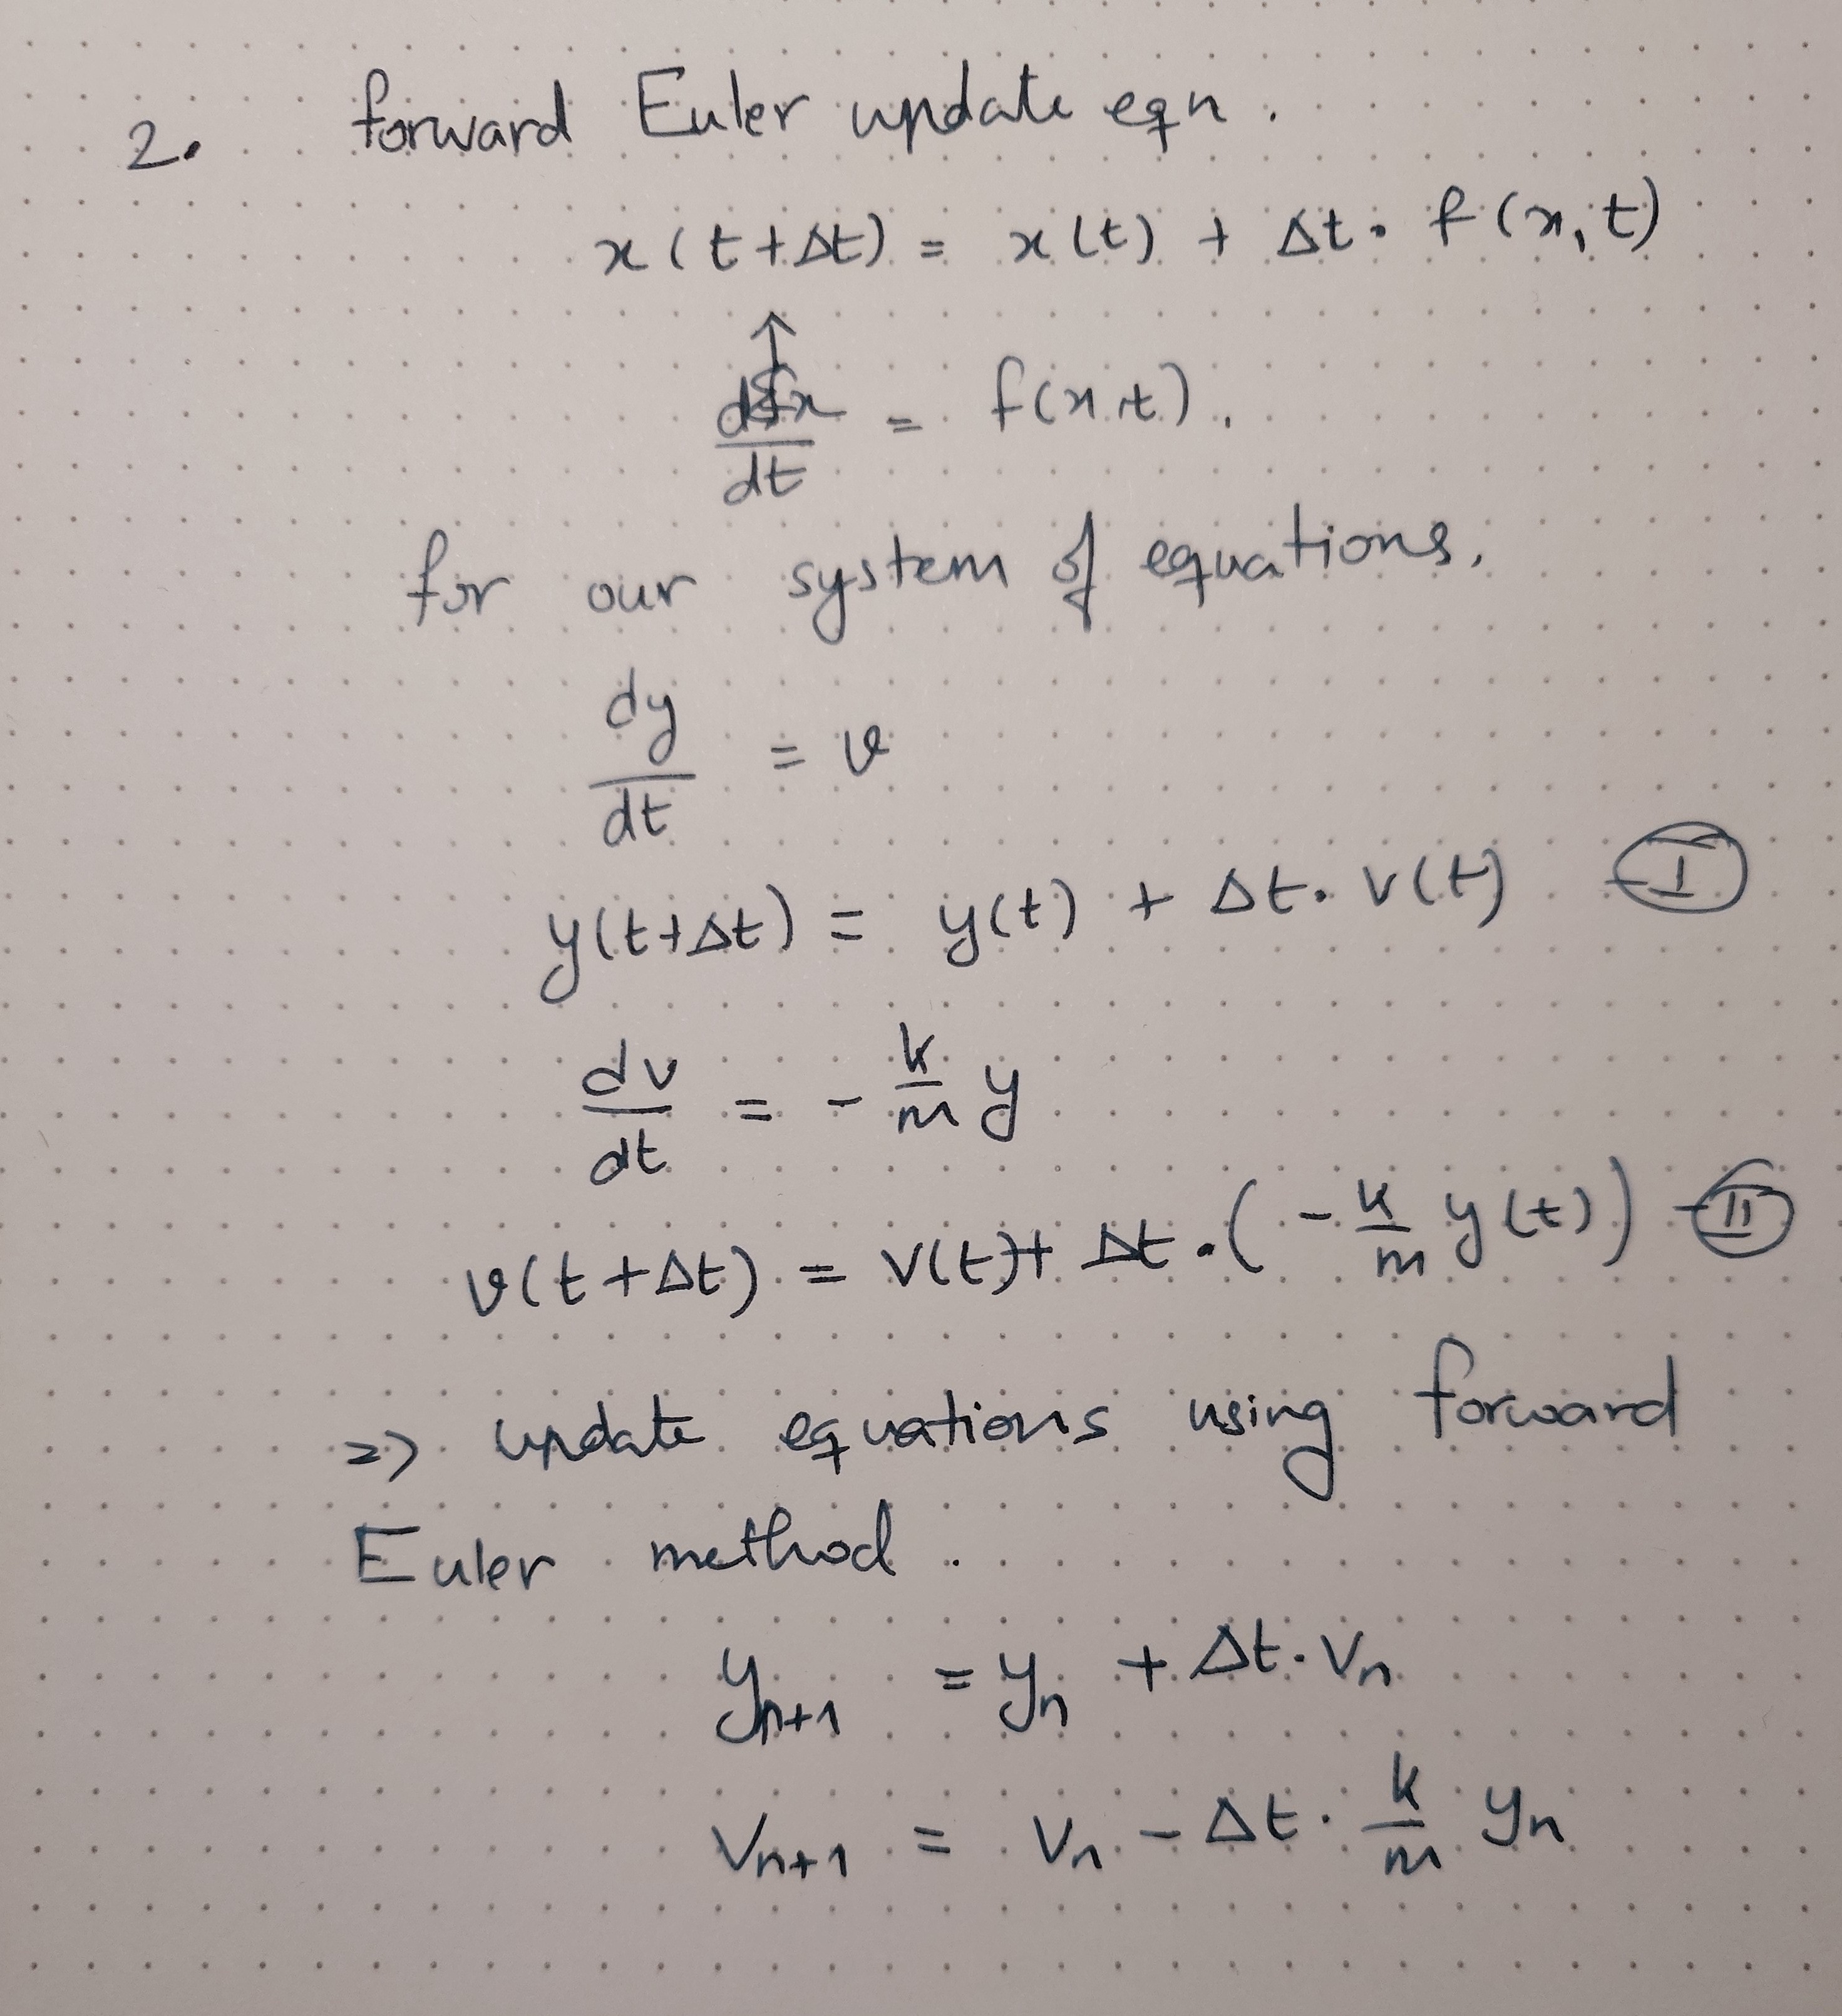 2. forward Euler update eqn.
x(t+Δt) = x(t) + Δt. f(x,t)
↑
dx/dt = f(x,t).
for our system of equations,
dy/dt = v
y(t+Δt) = y(t) + Δt. v(t) - I
dv/dt = - k/m y
v(t+Δt) = v(t)+ Δt.(- k/m y(t)) - II
=> update equations using forward
Euler method.
yn+1 = yn + Δt. vn
vn+1 = vn - Δt. k/m yn